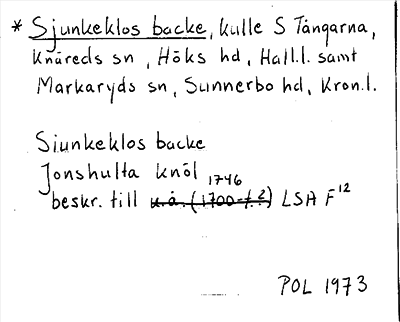 * Sjunkeklos backe, kulle S Tångarna,
Knäreds sn, Höks hd, Hall.l. samt
Markaryds sn, Sunnerbo hd, Kron.l.
Siunkeklos backe
Jonshulta knöl
beskr. till u.å. (1700-t.?) 1746 LSA F 12
POL 1973